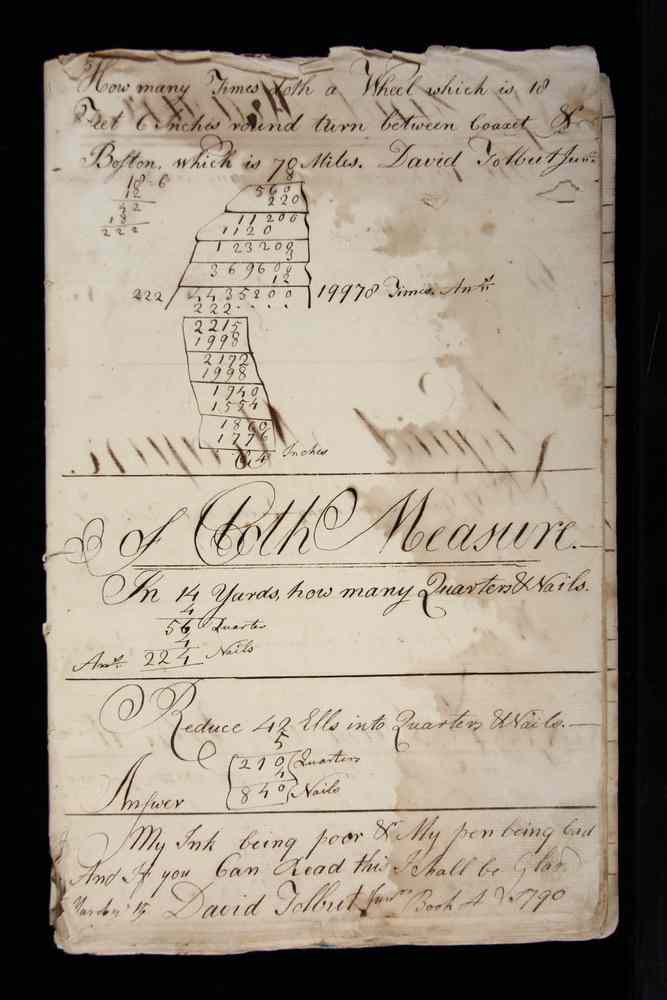 How many Times doth a Wheel which is 18
Feet 6 Inches round turn between Coaxet &
Boston, which is 70 Miles. David Tolbut Junr.
18 - 6
12
42
18
222
70
8
560
220
11200
1120
123200
3
369600
12
222 4435200 19978 Times. Ansr.
222
2215
1998
2172
1998
1740
1554
1860
1776
84 Inches
Of Cloth Measure.
In 14 Yards, how many Quarters & Nails.
4
56 Quarters
4
Answ. 224 Nails
Reduce 42 Ells into Quarters & Nails.
5
210 Quarters
4
Answer 840 Nails
My Ink being poor & My pen being bad
And If you Can Read this I shall be Glad
15 David Tolbut Junr. Book 1790